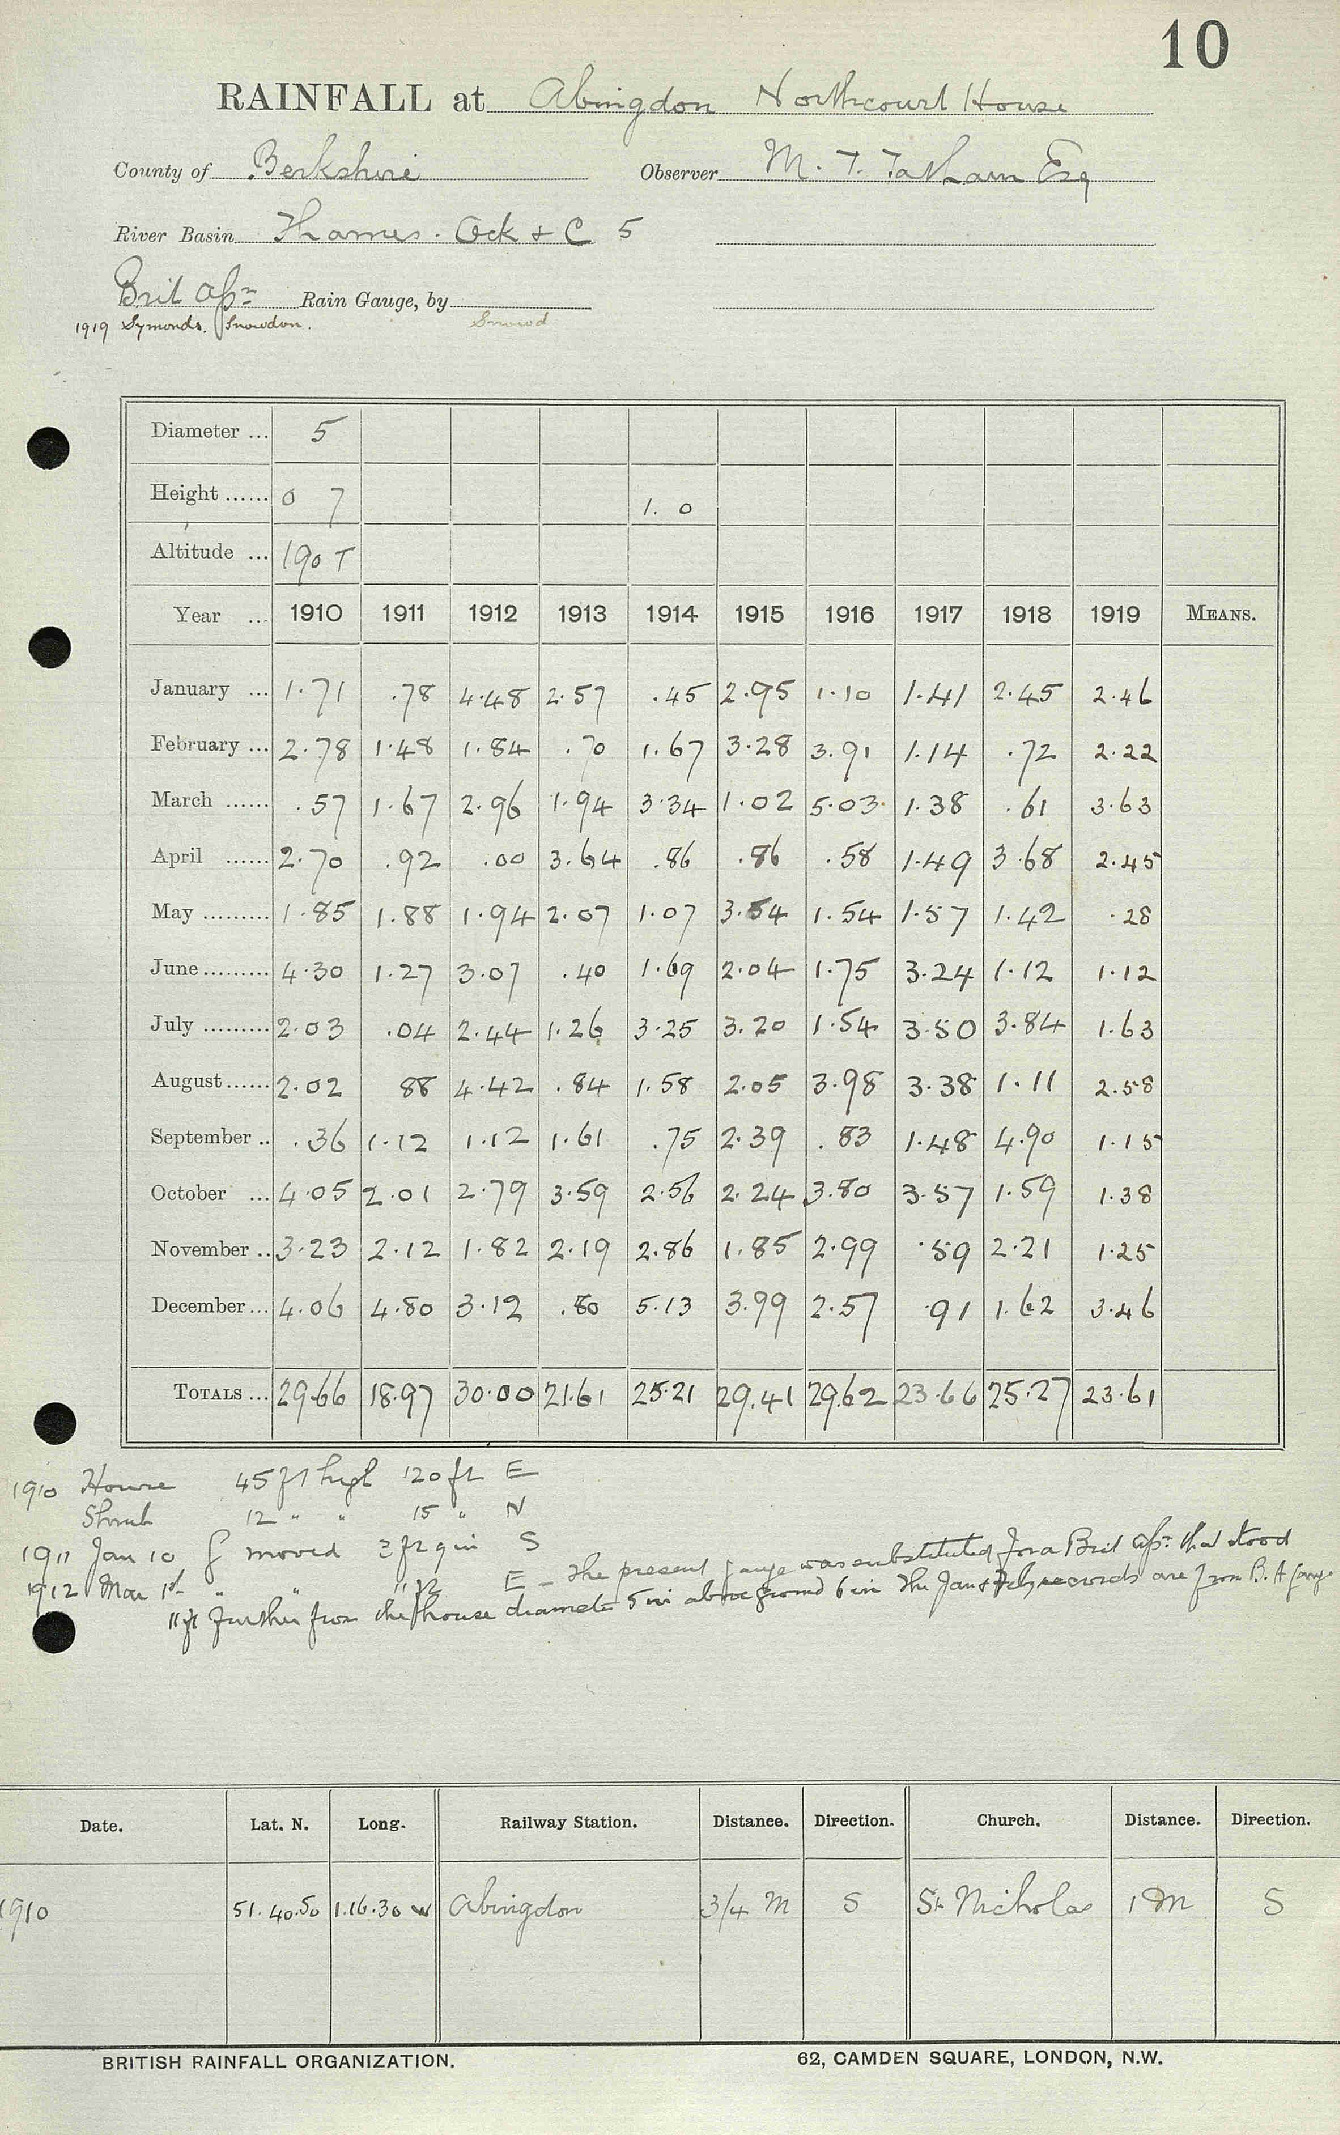 10
RAINFALL at Abingdon Northcourt House
County of Berkshire Observer M. T. Tatham Esq
River Basin Thames. Ock & C 5
Brit Assn Rain Gauge, by
1919 Symonds. Snowdon. Snowd
Diameter ... 5
Height ...... 0 7 1. 0
Altitude ... 190 T
Year ... 1910 1911 1912 1913 1914 1915 1916 1917 1918 1919 MEANS.
January ... 1.71 .78 4.48 2.57 .45 2.95 1.10 1.41 2.45 2.46
February ... 2.78 1.48 1.84 .70 1.67 3.28 3.91 1.14 .72 2.22
March ...... .57 1.67 2.96 1.94 3.34 1.02 5.03 1.38 .61 3.63
April ...... 2.70 .92 .00 3.64 .86 .86 .58 1.49 3.68 2.45
May ......... 1.85 1.88 1.94 2.07 1.07 3.54 1.54 1.57 1.42 .28
June ......... 4.30 1.27 3.07 .40 1.69 2.04 1.75 3.24 1.12 1.12
July ......... 2.03 .04 2.44 1.26 3.25 3.20 1.54 3.50 3.84 1.63
August ...... 2.02 88 4.42 .84 1.58 2.05 3.98 3.38 1.11 2.58
September .. .36 1.12 1.12 1.61 .75 2.39 .83 1.48 4.90 1.15
October ... 4.05 2.01 2.79 3.59 2.56 2.24 3.80 3.57 1.59 1.38
November .. 3.23 2.12 1.82 2.19 2.86 1.85 2.99 .59 2.21 1.25
December ... 4.06 4.80 3.12 .80 5.13 3.99 2.57 .91 1.62 3.46
TOTALS ... 29.66 18.97 30.00 21.61 25.21 29.41 29.62 23.66 25.27 23.61
1910 House 45 ft high 120 ft E
Shrub 12 " " 15 " N
1911 Jan 10 G moved 3 ft 9 in S
1912 Mar 1st " " 11 ft E - The present gauge was substituted for a Brit Assn. that stood
11 ft further from the house diameter 5 in above ground 6 in The Jan & Feb records are from B. A gauge
Date. Lat. N. Long. Railway Station. Distance. Direction. Church. Distance. Direction.
1910 51.40.50 1.16.30 W Abingdon 3/4 M S St Nicholas 1 M S
BRITISH RAINFALL ORGANIZATION. 62, CAMDEN SQUARE, LONDON, N.W.